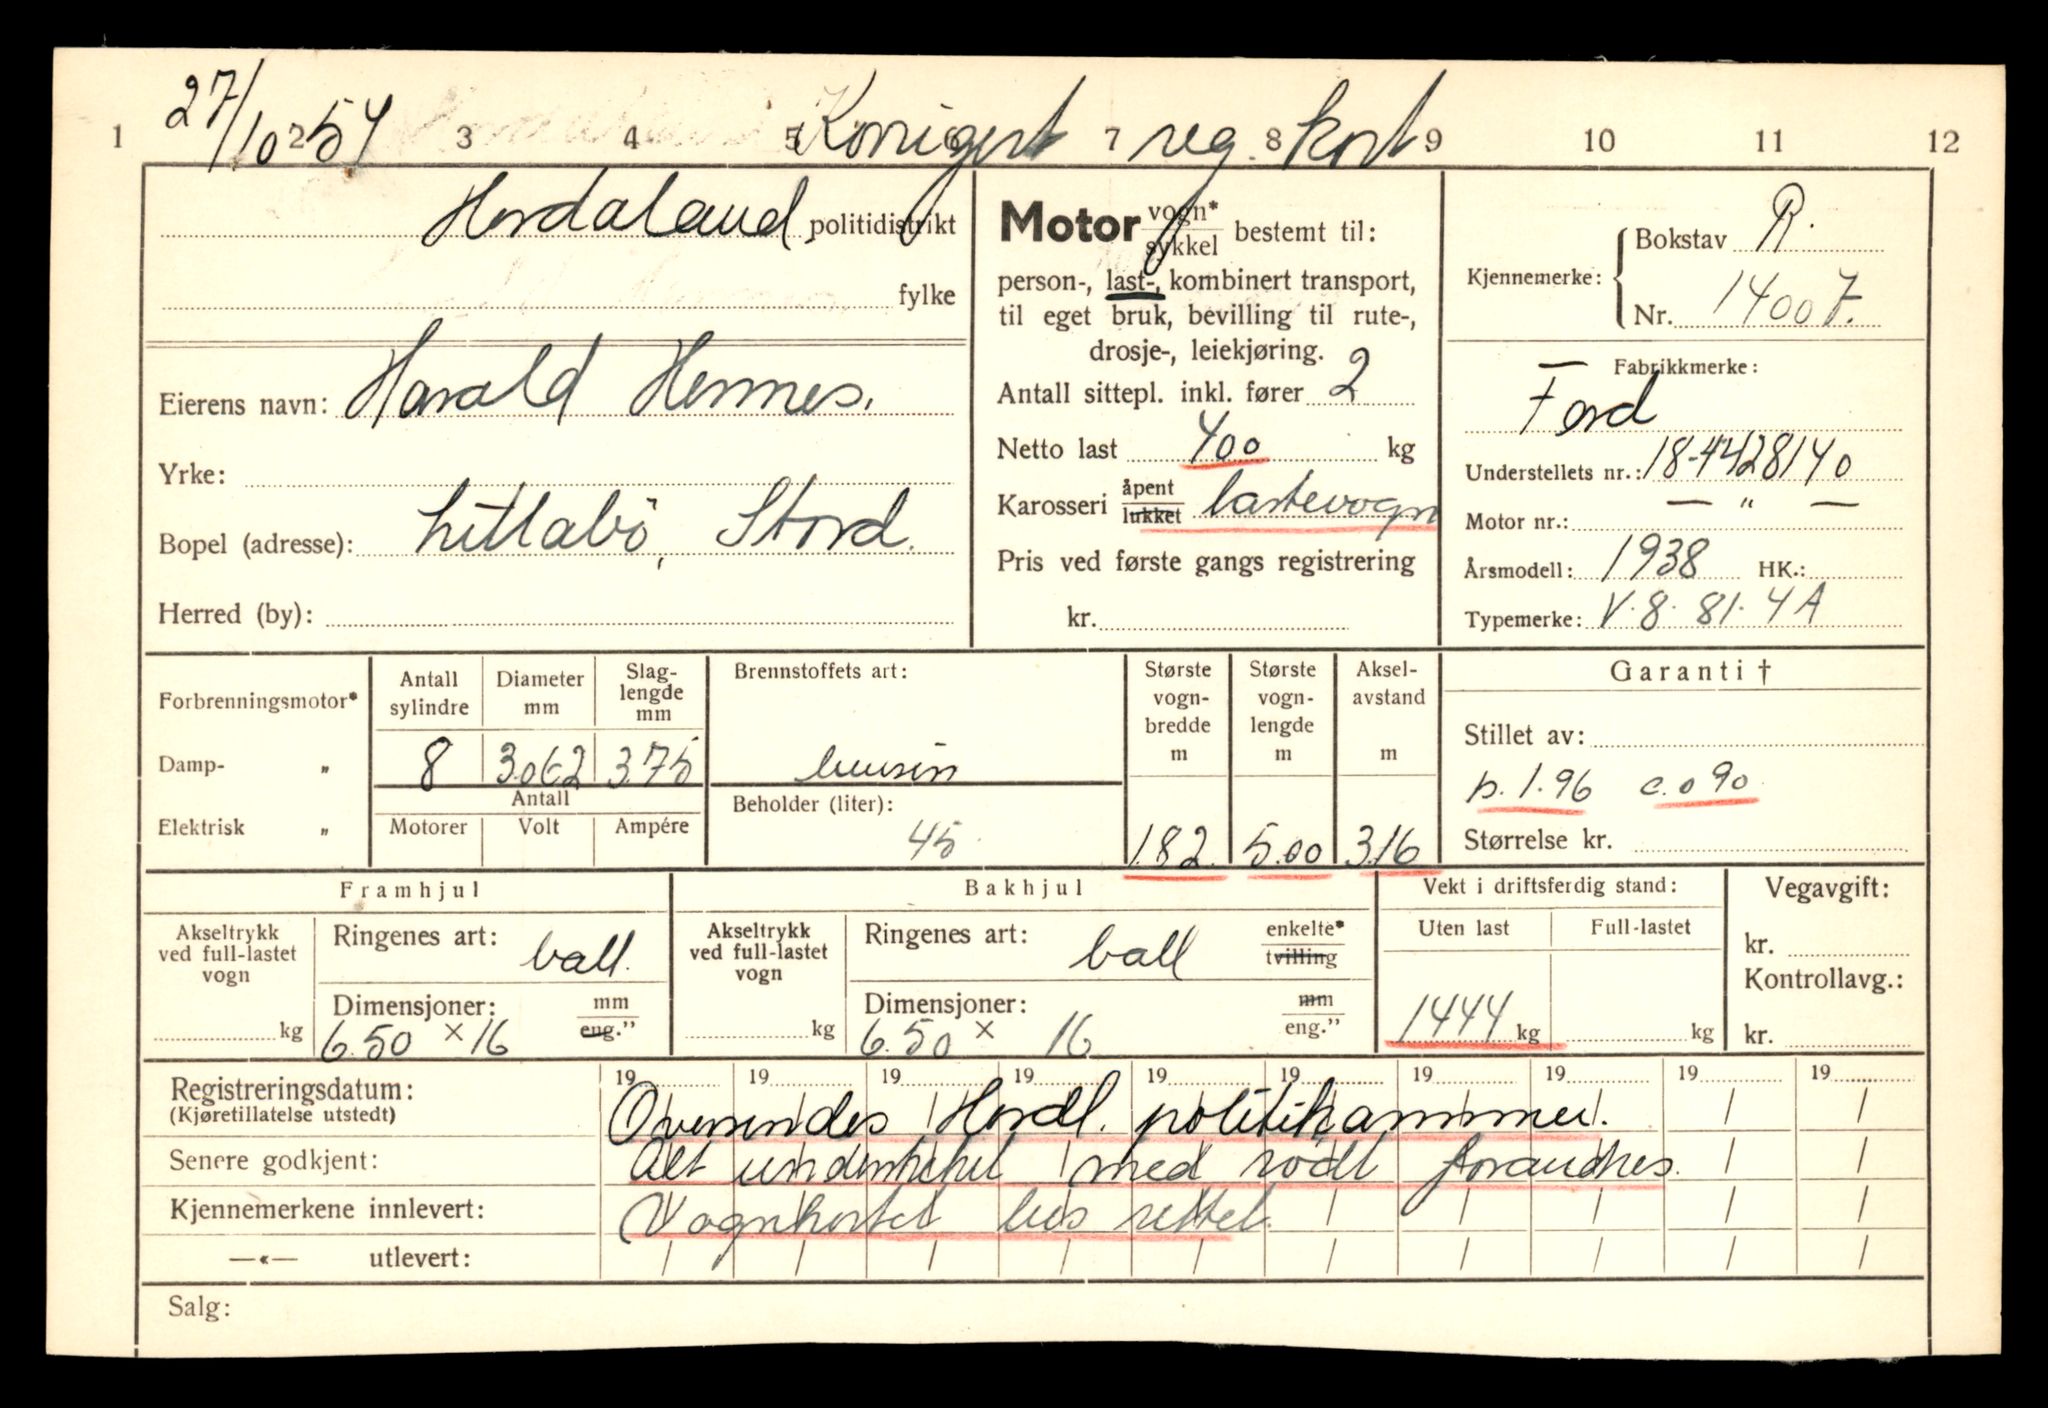 27/10 54 Korrigert reg. kort
1 2 3 4 5 6 7 8 9 10 11 12
Hordaland politidistrikt
fylke
Eierens navn: Harald Hermes.
Yrke:
Bopel (adresse): Littlabö, Stord.
Herred (by):
Motor vogn* sykkel bestemt til:
person-, last-, kombinert transport,
til eget bruk, bevilling til rute-,
drosje-, leiekjøring.
Antall sittepl. inkl. fører 2
Netto last 400 kg
Karosseri åpent lukket lastevogn
Pris ved første gangs registrering
kr.
Kjennemerke: Bokstav R.
Nr. 14007.
Fabrikkmerke:
Ford
Understellets nr.: 18-4428140
Motor nr.: — " —
Årsmodell: 1938 HK.:
Typemerke: V.8. 81.4A
Forbrenningsmotor*
Damp- „
Elektrisk „
Antall sylindre 8
Diameter mm 3.062
Slag-lengde mm 3.75
Antall
Motorer Volt Ampére
Brennstoffets art:
bensin
Beholder (liter):
45
Største vogn-bredde m 1.82
Største vogn-lengde m 5.00
Aksel-avstand m 3.16
Garanti †
Stillet av:
p. 1.96 c. 0 90
Størrelse kr.
Framhjul
Akseltrykk ved full-lastet vogn
kg
Ringenes art: ball.
Dimensjoner: mm eng.”
6.50 × 16
Bakhjul
Akseltrykk ved full-lastet vogn
kg
Ringenes art: ball enkelte* tvilling
Dimensjoner: mm eng.”
6.50 × 16
Vekt i driftsferdig stand:
Uten last Full-lastet
1444 kg kg
Vegavgift:
kr.
Kontrollavg.:
kr.
19 19 19 19 19 19 19 19 19 19
Registreringsdatum:
(Kjøretillatelse utstedt)
Oversendes Hordl. politikammer.
Senere godkjent: Alt understreket med rödt forandres.
Kjennemerkene innlevert: Vognkortet bes rettet.
—«— utlevert:
Salg: